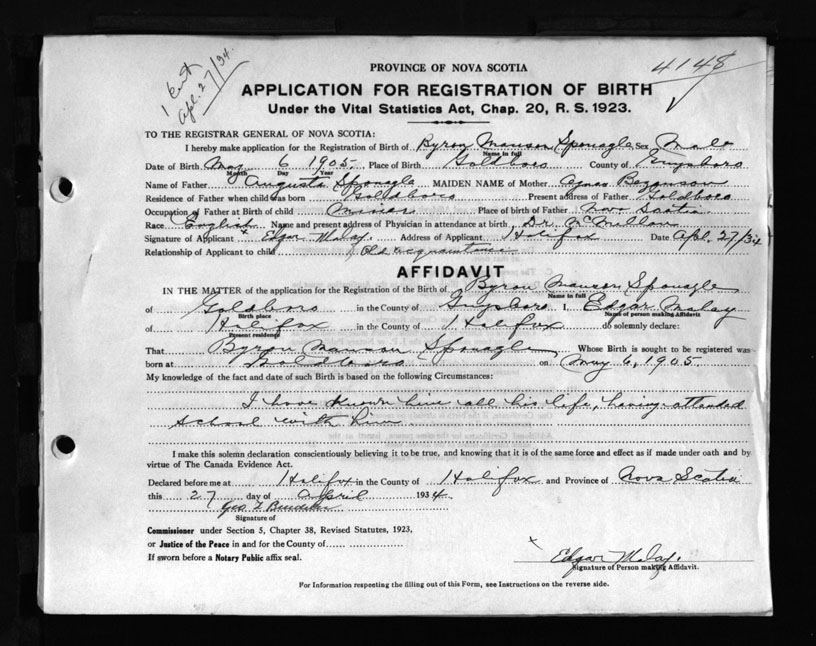 1 Cert
Apl. 27/34.
4148
PROVINCE OF NOVA SCOTIA
APPLICATION FOR REGISTRATION OF BIRTH
Under the Vital Statistics Act, Chap. 20, R. S. 1923.
TO THE REGISTRAR GENERAL OF NOVA SCOTIA:
I hereby make application for the Registration of Birth of Byron Manson Sponagle Sex Male
Name in full
Date of Birth May 6 1905. Place of Birth Goldboro County of Guysboro
Month Day Year
Name of Father Augusta Sponagle MAIDEN NAME of Mother Agnes
Residence of Father when child was born Goldboro Present address of Father Goldboro
Occupation of Father at Birth of child Miner Place of birth of Father Nova Scotia
Race English Name and present address of Physician in attendance at birth, Dr. McMillan
Signature of Applicant x Edgar Malay. Address of Applicant Halifax Date Apl. 27/34
Relationship of Applicant to child Old acquaintance
AFFIDAVIT
IN THE MATTER of the application for the Registration of the Birth of Byron Manson Sponagle
Name in full
of Goldboro in the County of Guysboro I, Edgar Malay
Birth place Name of person making Affidavit
of Halifax in the County of Halifax do solemnly declare:
Present residence
That Byron Manson Sponagle Whose Birth is sought to be registered was
born at Goldboro on May 6, 1905.
My knowledge of the fact and date of such Birth is based on the following Circumstances:
I have known him all his life, having attended
school with him
I make this solemn declaration conscientiously believing it to be true, and knowing that it is of the same force and effect as if made under oath and by
virtue of The Canada Evidence Act.
Declared before me at Halifax in the County of Halifax and Province of Nova Scotia
this 27 day of April 1934.
Geo
Signature of
Commissioner under Section 5, Chapter 38, Revised Statutes, 1923,
or Justice of the Peace in and for the County of
If sworn before a Notary Public affix seal.
x Edgar Malay.
Signature of Person making Affidavit.
For Information respecting the filling out of this Form, see Instructions on the reverse side.